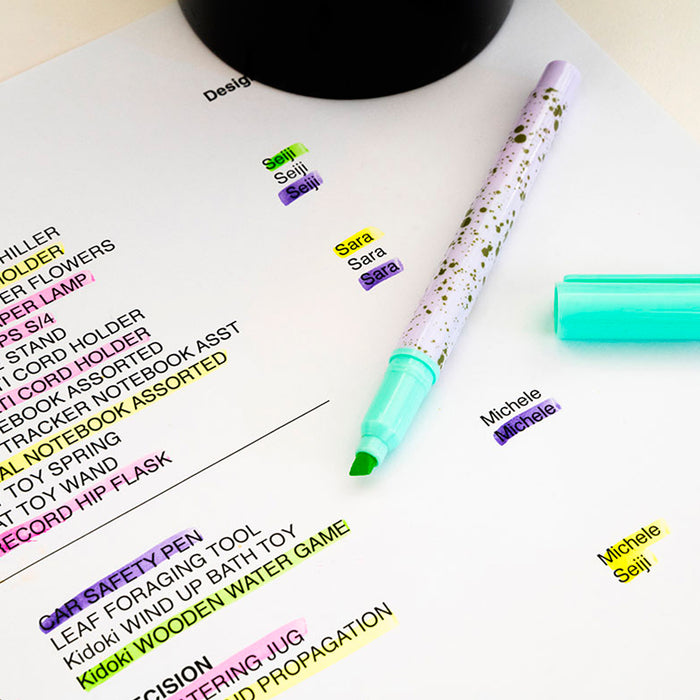 Seiji
Seiji
Seiji
Sara
Sara
Sara
HOLDER
FLOWERS
LAMP
S/4
STAND
CORD HOLDER
CORD HOLDER
ASSORTED
TRACKER NOTEBOOK ASST
NOTEBOOK ASSORTED
TOY SPRING
TOY WAND
RECORD HIP FLASK
Michele
Michele
Michele
Seiji
CAR SAFETY PEN
LEAF FORAGING TOOL
Kidoki WIND UP BATH TOY
Kidoki WOODEN WATER GAME
JUG
PROPAGATION